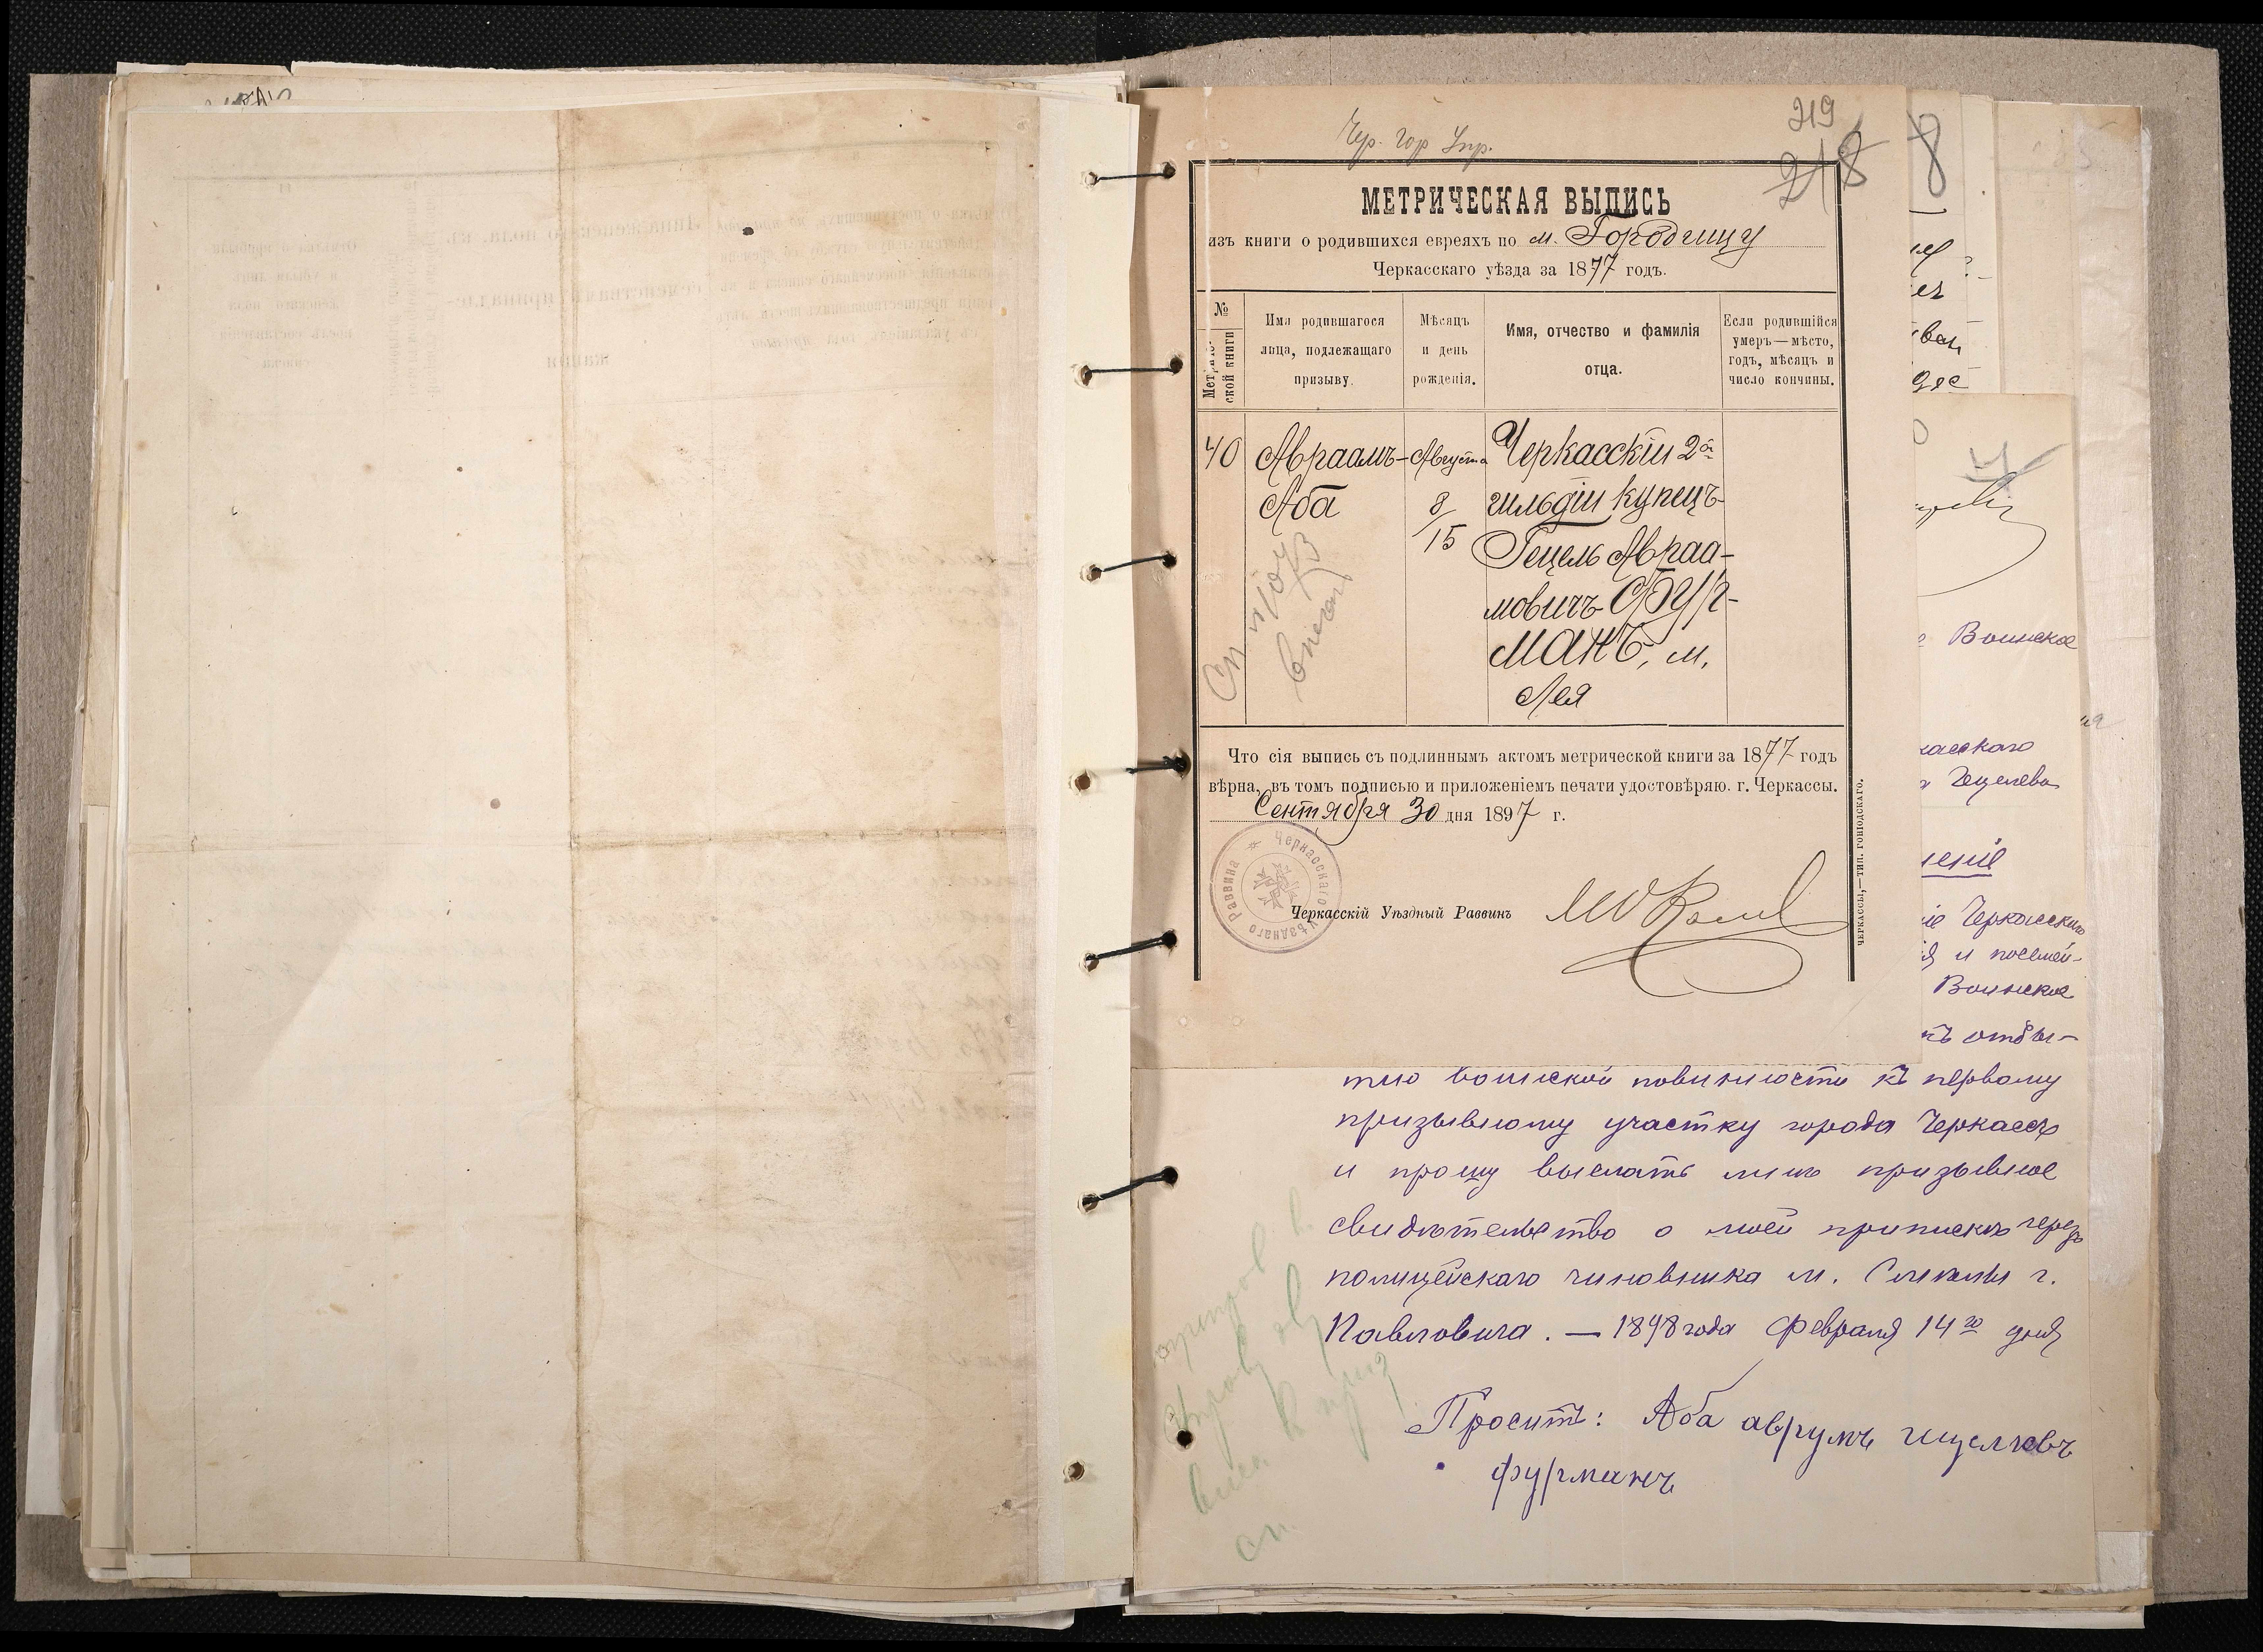 219
218
Чер. Гор. Упр.
МЕТРИЧЕСКАЯ ВЫПИСЬ
изъ книги о родившихся евреяхъ по м. Городищу
Черкасскаго уѣзда за 1877 годъ.
№ Метриче-ской книги
Имя родившагося лица, подлежащаго призыву.
Мѣсяцъ и день рожденія.
Имя, отчество и фамилія отца.
Если родившійся умеръ—мѣсто, годъ, мѣсяцъ и число кончины.
40 Авраамъ- Августа Черкасскій 2й
Аба 8/15 гильдіи купецъ
Гецель Авраа-
мовичъ ФУР-
МАНЪ, м.
Лея
Что сія выпись съ подлиннымъ актомъ метрической книги за 1877 годъ
вѣрна, въ томъ подписью и приложеніемъ печати удостовѣряю. г. Черкассы.
Сентября 30 дня 1897 г.
Черкасскаго Уѣзднаго Раввина
Черкасскій Уѣздный Раввинъ
ЧЕРКАССЫ,—ТИП. ГОНІОДСКАГО.
8
Воинское
касскаго
Гецелева
Черкасскаго
и посемей-
Воинское
къ отбы-
тію воинской повинности къ первому
призывному участку города Черкассъ
и прошу выслать мнѣ призывное
свидѣтельство о моей припискѣ черезъ
полицейскаго чиновника м. Смѣлы г.
Павловича. — 1898 года Февраля 14го дня
Проситъ: Аба аврумъ гецелевъ
фурманъ